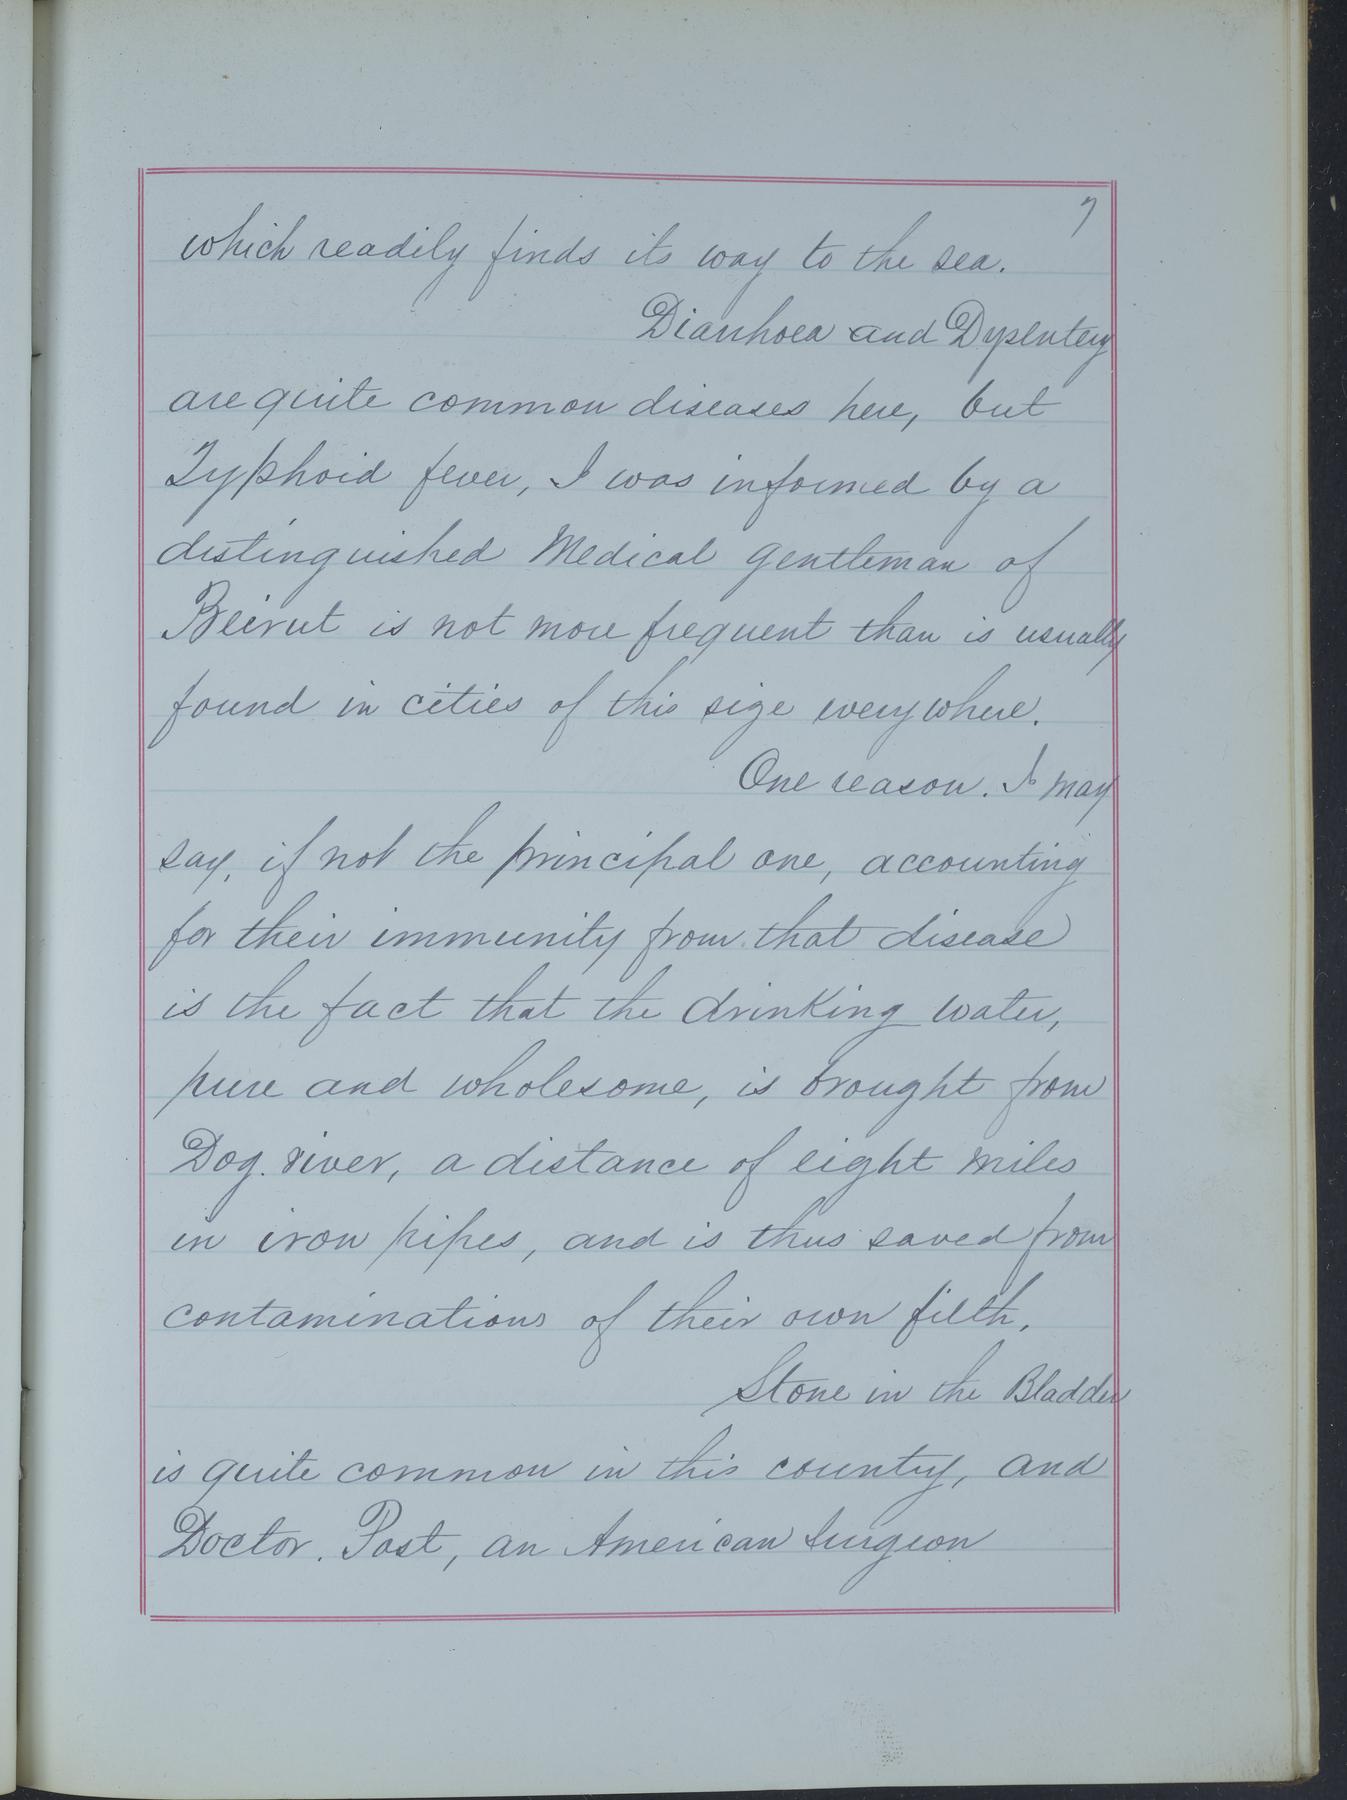 7
which readily finds its way to the sea.
Diarrhoea and Dysentery
are quite common diseases here, but
Typhoid fever, I was informed by a
distinguished Medical gentleman of
Beirut is not more frequent than is usually
found in cities of this size everywhere.
One reason. I may
say, if not the principal one, accounting
for their immunity from that disease
is the fact that the drinking water,
pure and wholesome, is brought from
Dog. river, a distance of eight miles
in iron pipes, and is thus saved from
contaminations of their own filth.
Stone in the Bladder
is quite common in this country, and
Doctor. Post, an American Surgeon